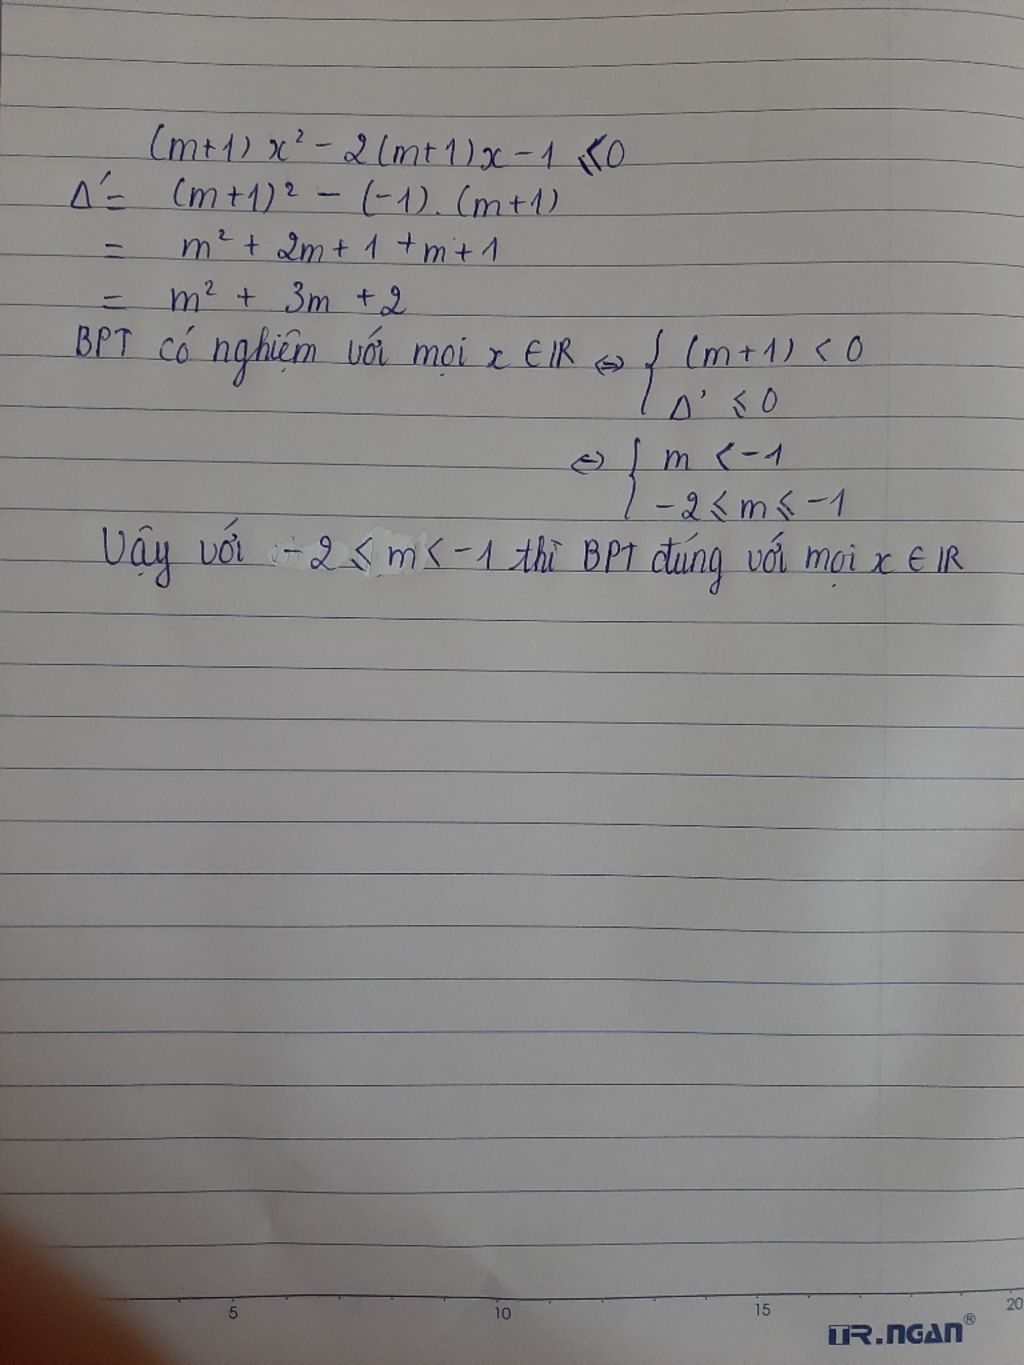 (m+1) x² - 2(m+1)x - 1 ≤ 0
Δ' = (m+1)² - (-1). (m+1)
= m² + 2m + 1 + m + 1
= m² + 3m + 2
BPT có nghiệm với mọi x ∈ ℝ ⇔ { (m+1) < 0
Δ' ≤ 0
⇔ { m < -1
-2 ≤ m ≤ -1
Vậy với -2 ≤ m < -1 thì BPT đúng với mọi x ∈ ℝ
5 10 15 20
TR.NGAN®